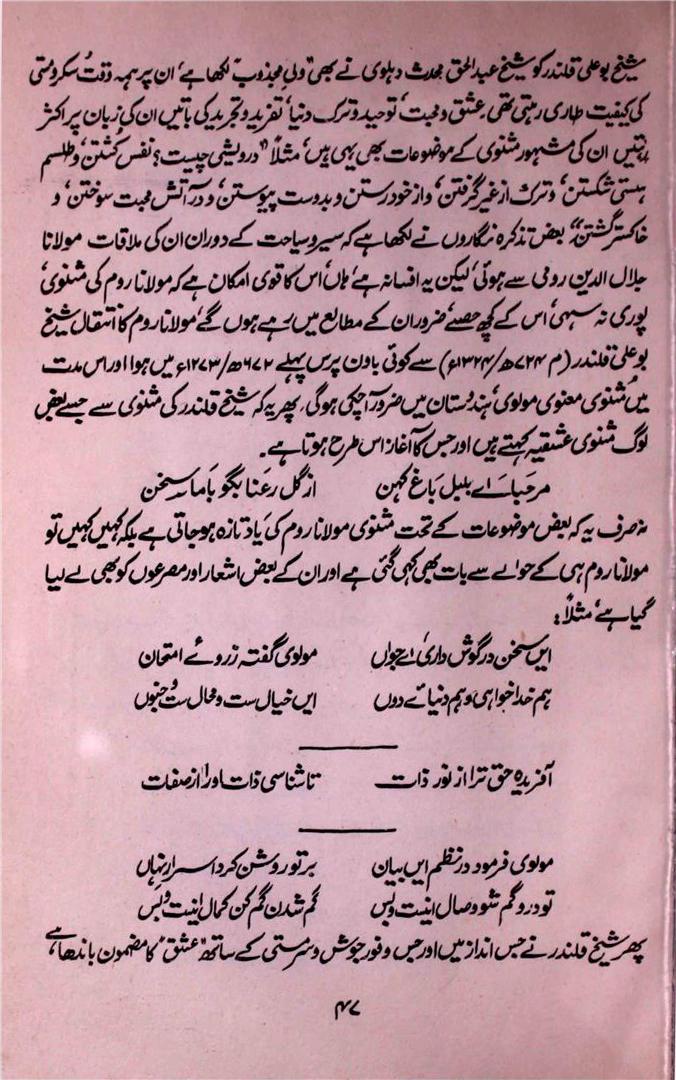 شیخ بو علی قلندر کو شیخ عبدالحق محدث دہلوی نے بھی "ولی مجذوب" لکھا ہے، ان پر ہمہ وقت سکر و مستی
کی کیفیت طاری رہتی تھی۔ عشق و محبت، توحید و ترک دنیا، تفرید و تجرید کی باتیں ان کی زبان پر اکثر
رہتیں ان کی مشہور مثنوی کے موضوعات بھی یہی ہیں، مثلاً "درویشی چیست؟ نفس کُشتن، و طلسم
ہستی شکستن، و ترک از غیر گرفتن، و از خود رستن و بدوست پیوستن، و در آتش محبت سوختن، و
خاکستر گشتن"، بعض تذکرہ نگاروں نے لکھا ہے کہ سیر و سیاحت کے دوران ان کی ملاقات مولانا
جلال الدین رومی سے ہوئی، لیکن یہ افسانہ ہے، ہاں، اس کا قوی امکان ہے کہ مولانا روم کی مثنوی،
پوری نہ سہی، اس کے کچھ حصے، ضرور ان کے مطالع میں رہے ہوں گے، مولانا روم کا انتقال شیخ
بو علی قلندر (م ۷۲۴ھ/۱۳۲۴ء) سے کوئی باون برس پہلے ۶۷۲ھ/۱۲۷۳ء میں ہوا اور اس مدت
میں مثنوی معنوی مولوی، ہندستان میں ضرور آچکی ہوگی، پھر یہ کہ شیخ قلندر کی مثنوی سے جسے بعض
لوگ مثنوی عشقیہ کہتے ہیں اور جس کا آغاز اس طرح ہوتا ہے۔
مرحبا اے بلبل باغ کہن از گل رعنا بگو با ما سخن
نہ صرف یہ کہ بعض موضوعات کے تحت مثنوی مولانا روم کی یاد تازہ ہو جاتی ہے بلکہ کہیں کہیں تو
مولانا روم ہی کے حوالے سے بات بھی کہی گئی ہے اور ان کے بعض اشعار اور مصرعوں کو بھی لے لیا
گیا ہے، مثلاً:
ایں سخن در گوش داری اے جواں مولوی گفتہ ز روئے امتحان
ہم خدا خواہی و ہم دنیائے دوں ایں خیال ست و محال ست و جنوں
آفریدہ حق ترا از نور ذات تا شناسی ذات او را از صفات
مولوی فرمود در نظم ایں بیان بر تو روشن کرد اسرار نہاں
تو درو گم شو وصال اینست و بس گم شدن گم کن کمال اینست و بس
پھر شیخ قلندر نے جس انداز میں اور جس وفور جوش و سرمستی کے ساتھ "عشق" کا مضمون باندھا ہے
۴۷